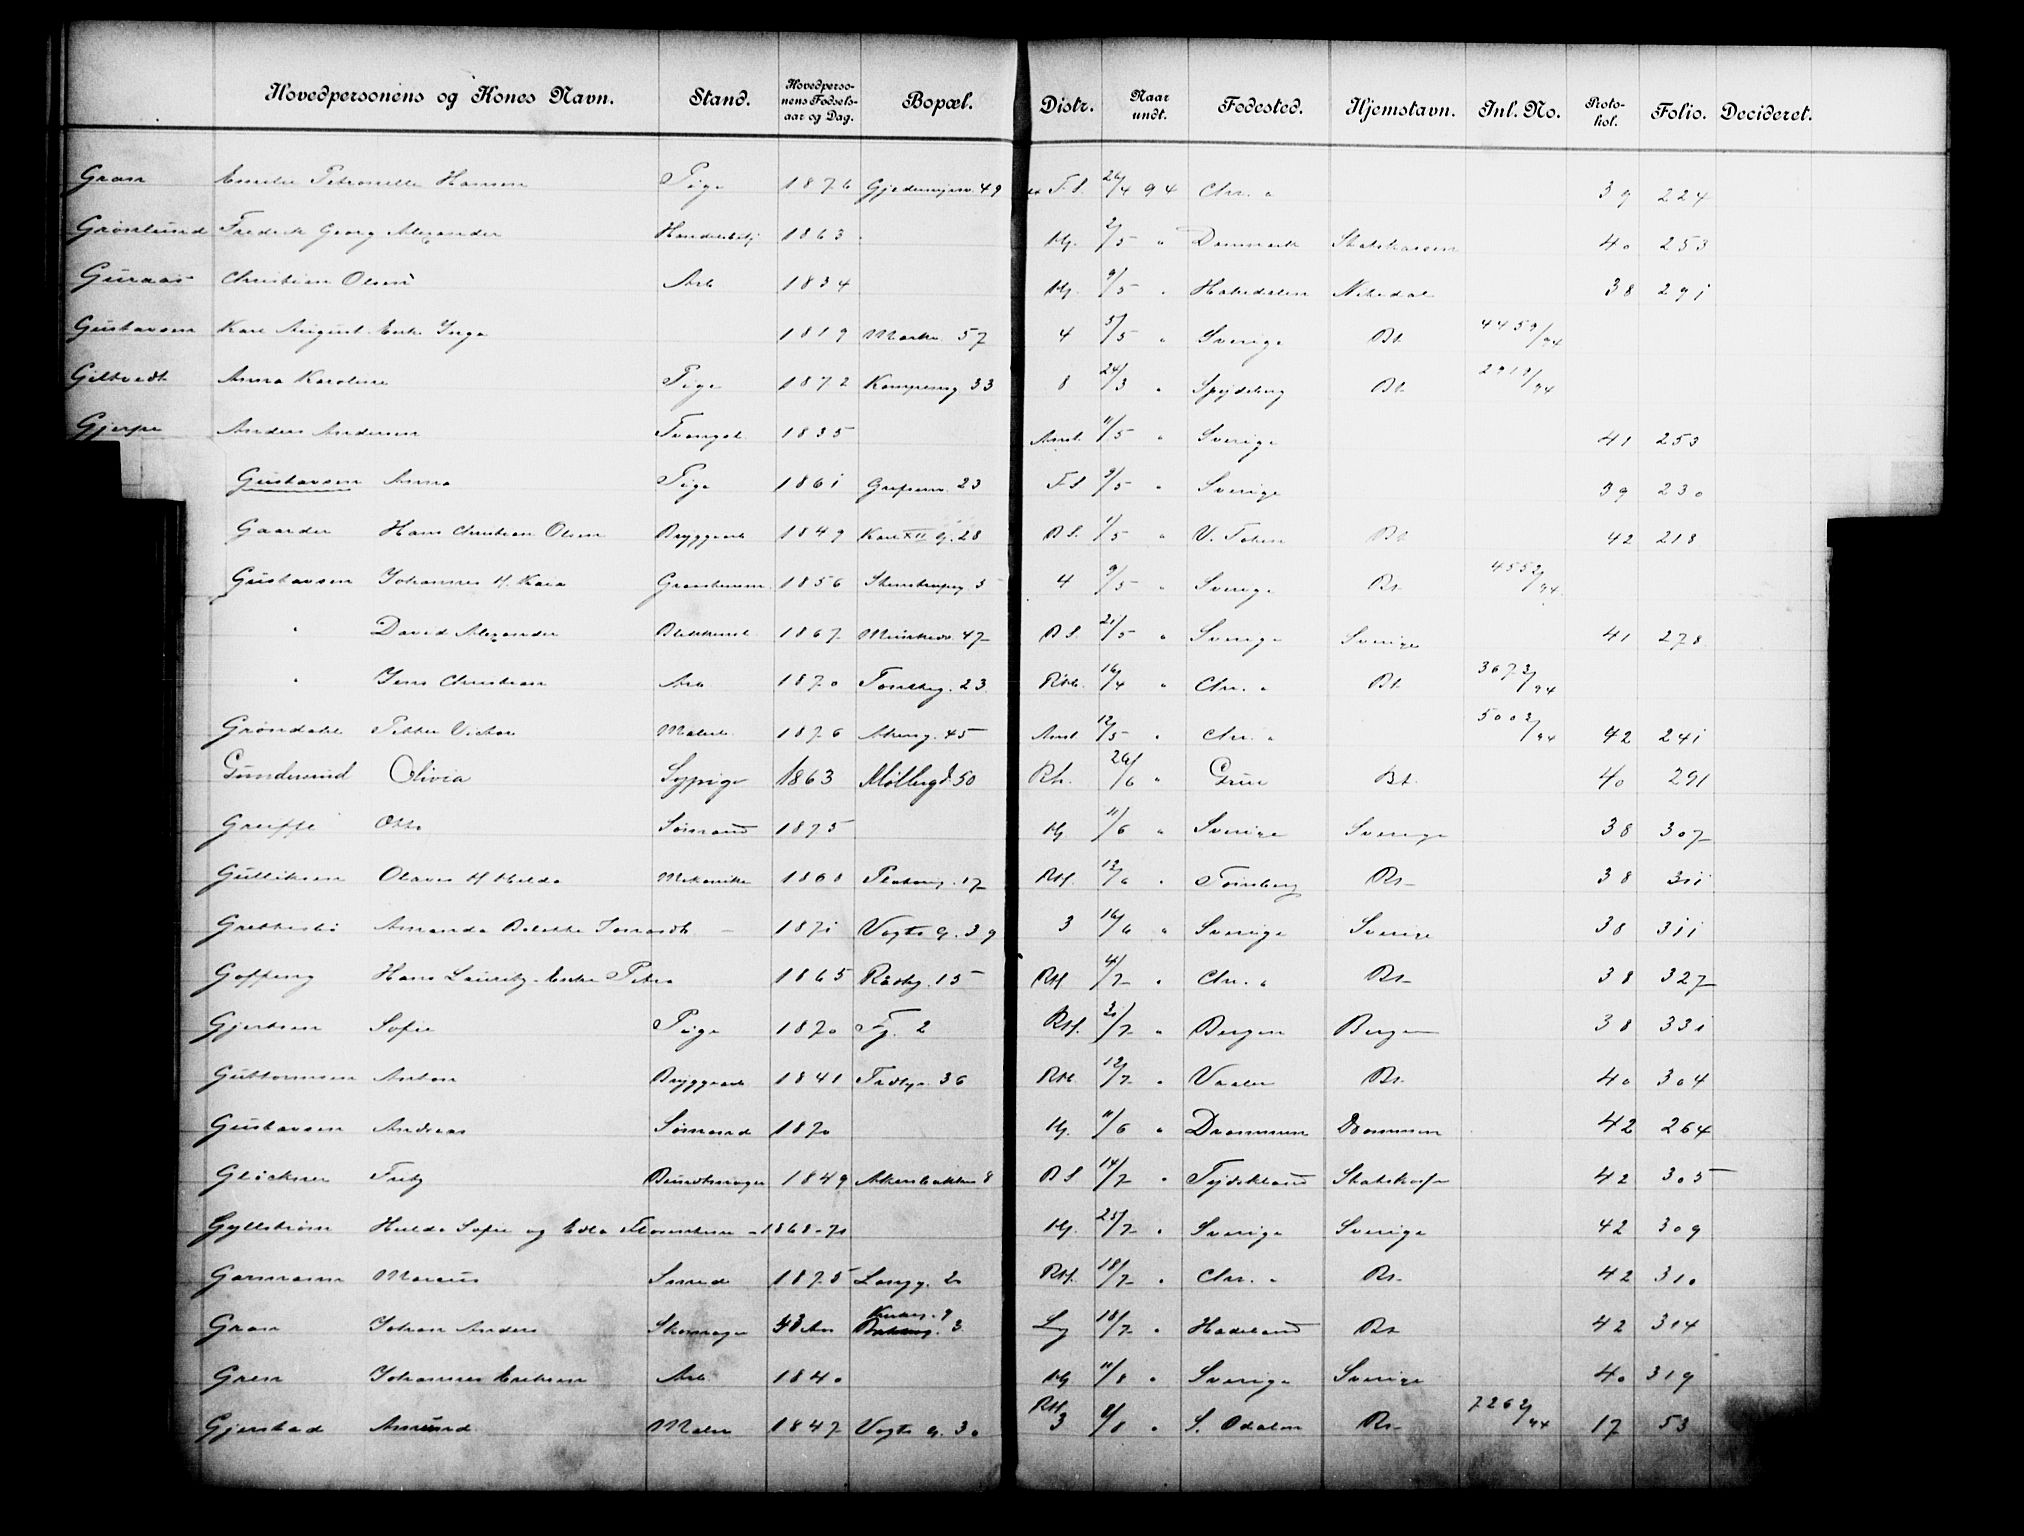 Hovedpersonens og Kones Navn. Stand. Hovedpersonens Fødselsaar og Dag. Bopæl. Distr. Naar undt. Fødested. Hjemstavn. Inl. No. Protokol. Folio. Decideret.
Gran Emilie Petronelle Hansen Pige 1876 49 F.S. 26/4 94 Chr. " 39 224
Grønlund Fredrik Georg Alexander 1863 Hj. 2/5 " Danmark Statskassen 40 253
Guraas Christian Olsen Arb 1834 Hj. 9/5 " Hakedalen Nitedal 38 291
Gustavsen Karl August Enke Inga 1819 Markv. 57 4 5/5 " Sverige Bt. 4459/94
Giltvedt Anna Karoline Pige 1872 Kampeng 33 8 24/3 " Spydeberg Bt. 2919/94
Gjerpe Anders Andersen Tvangsl. 1835 Amt. 11/5 " Sverige 41 253
Gustavsen Anna Pige 1861 Grefsenv. 23 F.S. 9/5 " Sverige 39 230
Gaarder Hans Christian Olsen Bryggearb 1849 Karl XII G. 28 B.S. 1/5 " V. Toten Bt 42 218
Gustavsen Johannes H. Kaia 1856 Stenstrupg. 5 4 9/5 " Sverige Bt. 4552/94
" David Alexander Blikkensl. 1867 Munkedv. 47 B.S. 21/5 " Sverige Sverige 41 278
" Jens Christian Arb 1870 Torvbg. 23 RH. 16/4 " Chr. " Bt. 3673/94
Grøndahl Petter Victor Malerl. 1876 Akersg. 45 Amt 12/5 " Chr. " 5002/94 42 241
Gunderud Olivia Sypige 1863 Møllergd. 50 Rh. 26/6 " Grue Bt. 40 291
Otto Sømand 1875 Hj. 11/6 " Sverige Sverige 38 307
Gulliksen Olaves H Hilda Mekaniker 1868 Platousg. 17 RH. 12/6 " Tønsberg Bt 38 311
Amanda 1871 Vogts G. 39 3 16/6 " Sverige Sverige 38 311
Hans Lauritz. Enke Petra 1865 15 RH 4/7 " Chr. " Bt 38 327
Gjertsen Sofie Pige 1870 2 RH. 20/7 " Bergen Bergen 38 331
Guttormsen Anton Bryggearb 1841 Tøibg. 36 RH. 12/7 " Vaaler Bt. 40 304
Gustavsen Andreas Sømand 1870 Hj. 11/6 " Drammen Drammen 42 264
Glöckner Fritz Buntmager 1849 Akersbakken 8 B S 14/7 " Tydskland Statskasse 42 305
Gyllstrøm Hulda Sofie og Edla Florentine 1868-71 Hj. 25/7 " Sverige Sverige 42 309
Garmann Marius Smed 1875 Langg. 20 RH. 18/7 " Chr. " Bt. 42 310
Gran Johan Anders Skomager 43 Aar 9 3 Lg 18/7 " Hadeland Bt 42 314
Gren Johannes Eriksen Arb. 1840 Hj 11/8 " Sverige Sverige 40 319
Gjerstad Amund Maler 1847 Vogts G. 30 RH. 3 8/8 " S. Odalen Bt. 7262/94 17 53